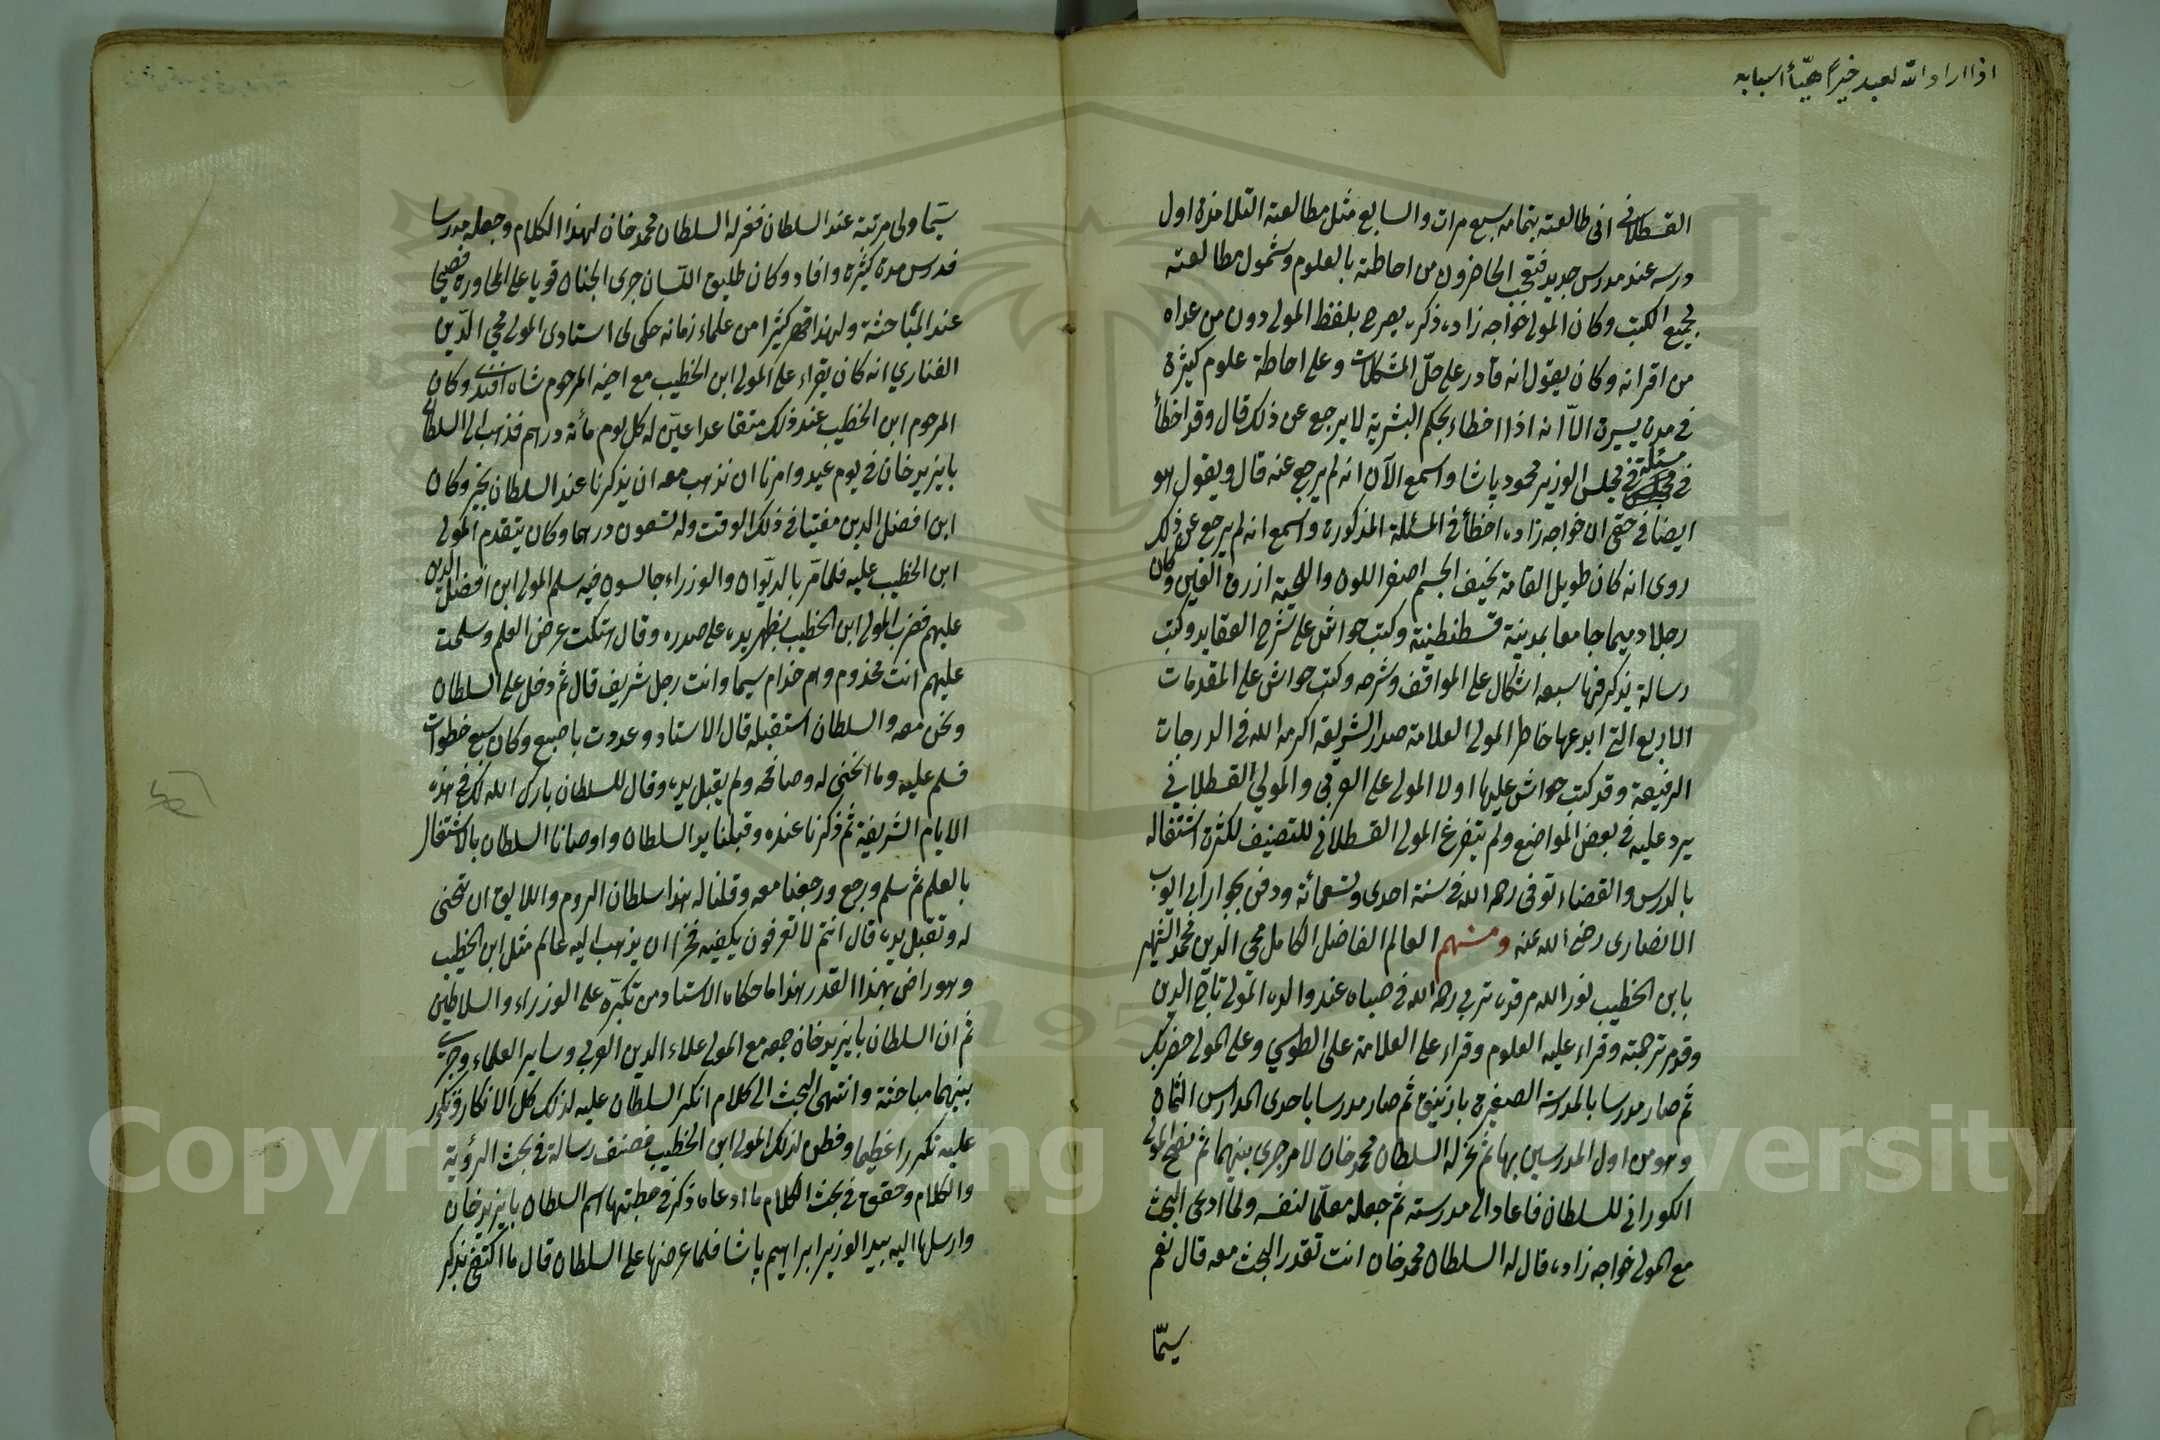 اذا اراد الله لعبد خيرا هيّأ اسبابه
القسطلاني اني طالعته بتمامه سبع مرات والسابع مثل مطالعته التلامذة اول
درسه عند مدرس جديد فتعجب الحاضرون من احاطته بالعلوم وشمول مطالعته
لجميع الكتب وكان المولى خواجه زاده ذكره يصرح بلفظ المولى دون من عداه
من اقرانه وكان يقول انه قادر على حلّ المشكلات وعلى احاطة علوم كثيرة
في مدة يسيرة الاّ انه اذا اخطاء بحكم البشرية لا يرجع عن ذلك قال وقد اخطأ
في مسئلة في مجلس الوزير محمود باشا واسمع الآن انه لم يرجع عنه قال ويقول هو
ايضا في حقى ان خواجه زاده اخطأ في المسئلة المذكورة واسمع انه لم يرجع عن ذلك
روى انه كان طويل القامة نحيف الجسم اصفر اللون واللحية ازرق العين وكان
رجلا دميما جامعا بمدينة قسطنطينة وكتب حواشى على شرح العقايد وكتب
رسالة يذكر فيها سبعه اشكال على المواقف وشرحه وكتب حواش على المقدمات
الاربع التي ابدعها خاطر المولى العلامة صدر الشريعة اكرمه الله في الدرجات
الرفيعة وقد كتب حواش عليها اولا المولى على العربي والمولى القسطلاني
يرد عليه في بعض المواضع ولم يتفرغ المولى القسطلاني للتصنيف لكثرة اشتغاله
بالدرس والقضاء توفى رحمه الله في سنة احدى وتسعمائة ودفن بجوار ابي ايوب
الانصارى رضى الله عنه ومنهم العالم الفاضل الكامل محي الدين محمد الشهير
بابن الخطيب نور الله مرقده تربى رحمه الله في صباه عند والده المولى تاج الدين
وقد مر ترجمته وقراء عليه العلوم وقراء على العلامة على الطوسي وعلى المولى خضر بك
ثم صار مدرسا بالمدرسة الصغيرة بازنيق ثم صار مدرسا باحدى المدارس الثمان
وهو من اول المدرسين بها ثم عزله السلطان محمد خان لامر جرى بينهما ثم نصح المولى
الكوراني للسلطان فاعاد الى مدرسته ثم جعله معلّما لنفسه ولما ادعى البحث
مع المولى خواجه زاده قال له السلطان محمد خان انت تقدر البحث معه قال نعم
سيّما
سيّما ولى مرتبة عند السلطان فعزله السلطان محمد خان لهذا الكلام وجعله مدرسا
فدرس مدة كثيرة وافاد وكان طليق اللسان جرى الجنان قويا على المحاورة فصيحا
عند المباحثة ولهذا قهر كثيرا من علماء زمانه حكى لى استادى المولى محي الدّين
الفناري انه كان يقراء على المولى ابن الخطيب مع اخيه المرحوم شاه افندى وكان
المرحوم ابن الخطيب عند ذلك متقاعدا عيّن له كل يوم مائة درهم فذهب الى السلطان
بايزيد خان في يوم عيد وامرنا ان نذهب معه ان يذكرنا عند السلطان بخير وكان
ابن افضل الدين مفتيا في ذلك الوقت وله تسعون درهما وكان يتقدم المولى
ابن الخطيب عليه فلما مر بالديوان والوزراء جالسون فيه سلم المولى ابن افضل الدين
عليهم فضرب المولى ابن الخطيب بظهر يده على صدره وقال هتكت عرض العلم وسلمت
عليهم انت مخدوم وهم خدام سيما وانت رجل شريف قال ثم دخل على السلطان
ونحن معه والسلطان استقبله قال الاستاد وعدوت باصبع وكان سبع خطوات
فسلم عليه وما انحنى له وصافحه ولم يقبل يده وقال للسلطان بارك الله لك في هذه
الايام الشريفة ثم ذكرنا عنده وقبلنا يد السلطان واوصانا السلطان بالاشتغال
بالعلم ثم سلم ورجع ورجعنا معه وقلنا له هذا سلطان الروم واللايق ان تنحنى
له وتقبل يده قال انتم لا تعرفون يكفيه فخرا ان يذهب اليه عالم مثل ابن الخطيب
وهو راض بهذا القدر هذا ما حكاه الاستاد من تكبّره على الوزراء والسلاطين
ثم ان السلطان بايزيد خان جمعه مع المولى علاء الدين العربي وساير العلماء وجرى
بينهما مباحثة وانتهى البحث الى كلام انكر السلطان عليه لذلك كل الانكار وتكدر
عليه تكدرا عظيما وفطن لذلك المولى ابن الخطيب فصنف رسالة في بحث الرؤية
والكلام وحقق في بحث الكلام ما ادعاه ذكر في خطبتها اسم السلطان بايزيد خان
وارسلها اليه بيد الوزير ابراهيم پاشا فلما عرضها على السلطان قال ما اكتفى بذكر
Copyright © King Saud University
1957